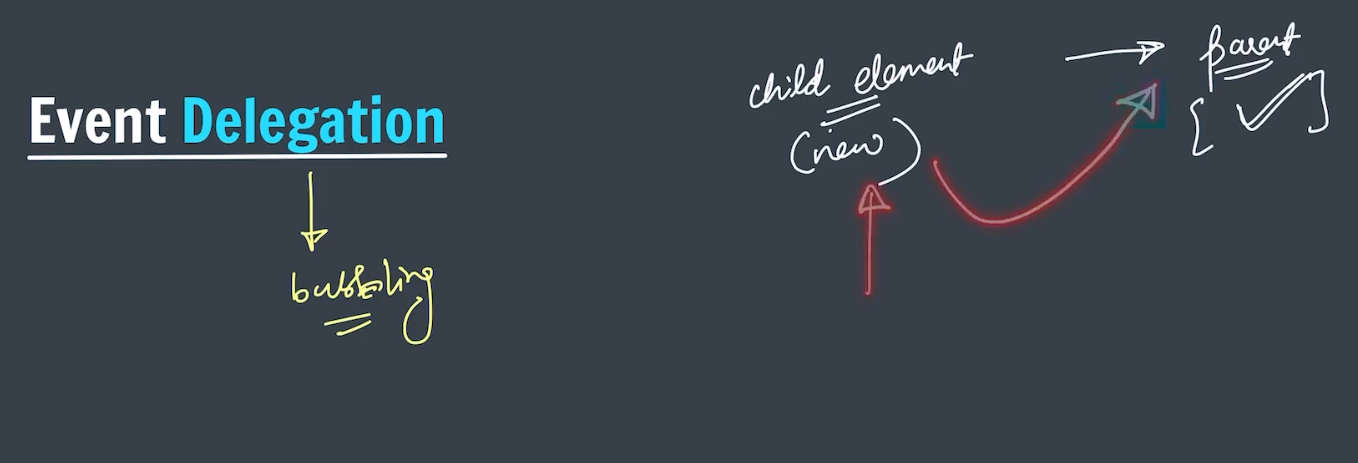 Event Delegation
bubbling
child element
(new)
parent